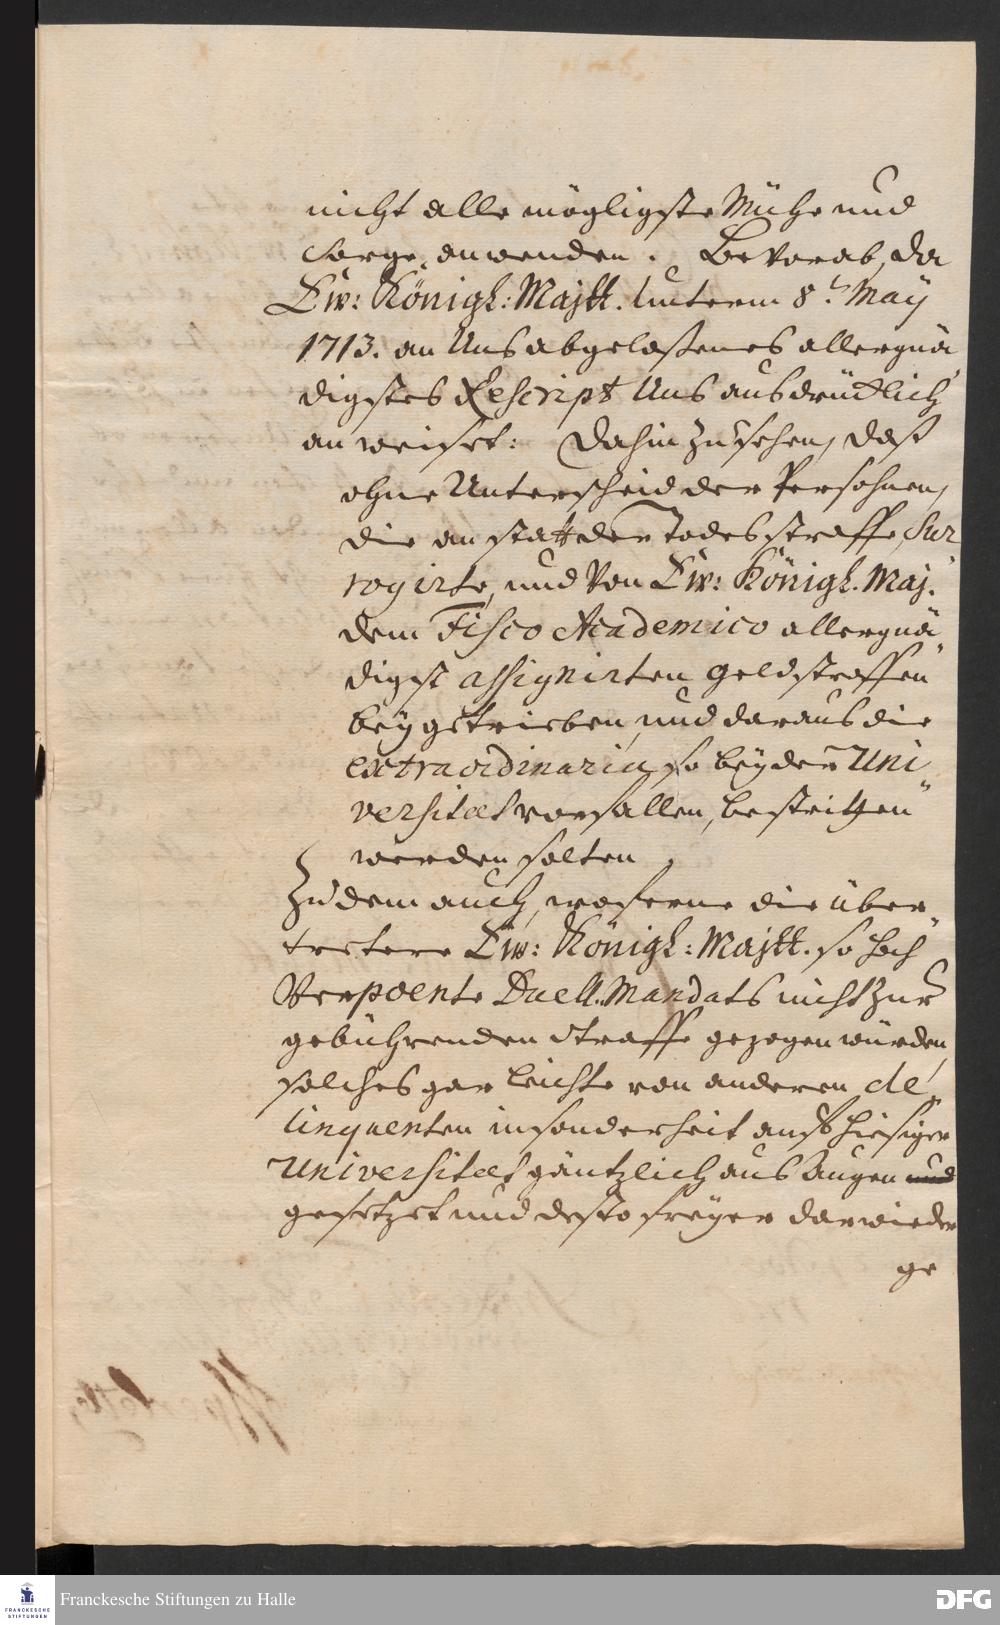 nicht alle mögligste Mühe und
Sorge anwenden. Bevorab, da
Ew: Königl: Majtt. unterm 8.t May
1713. an Uns abgelaßenes allergnä
digstes Rescript Uns ausdrücklich
anweiset: Dahin zu sehen, daß
ohne Unterscheid der Persohnen,
die anstatt der Todesstraffe, Sur
rogirte, und von Ew: Königl. Maj.
dem Fisco Academico allergnä
digst assignirten Geldstraffen
beygetrieben, und daraus die
extraordinaria, so bey der Uni
versitaet vorfallen, bestritten
werden solten,
Zudem auch, woferne die über
tretere Ew: Königl: Majtt. so hoch
Verpoente Duell-Mandats nicht zur
gebührenden Straffe gezogen würden,
solches gar leichte von anderen de
linquenten insonderheit auf hiesiger
Universitaet gäntzlich aus Augen und
gesetzet und desto freyer darwieder
ge
Franckesche Stiftungen zu Halle
FRANCKESCHE
STIFTUNGEN
DFG